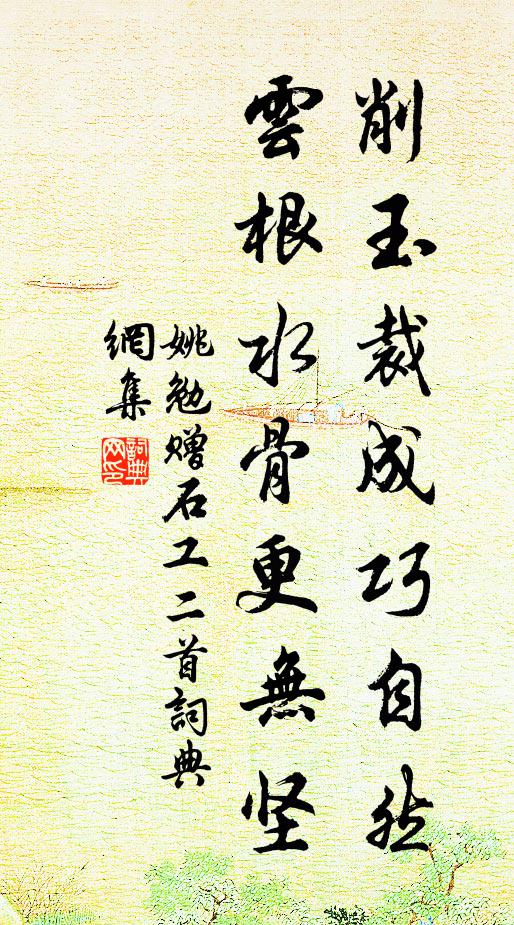 削玉裁成巧自然
雲根水骨更無坚
姚勉赠石工二首詞典
網集
詞典
网印